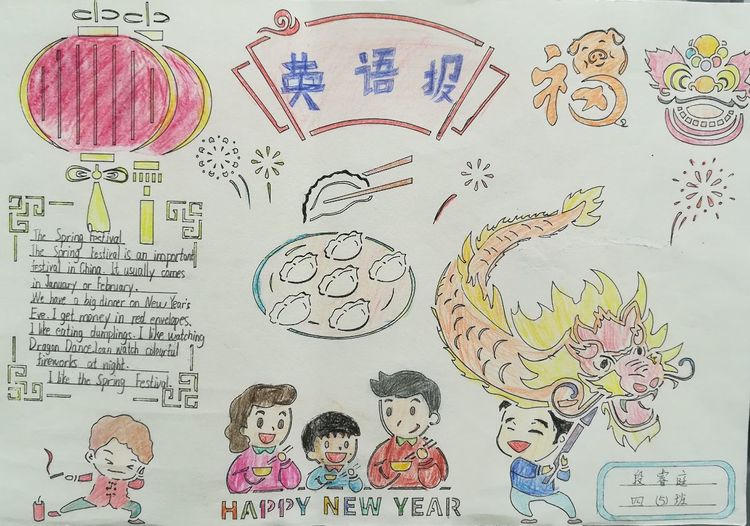 英语报
福
The Spring Festival
The Spring Festival is an important
festival in China. It usually comes
in January or February.
We have a big dinner on New Year's
Eve. I get money in red envelopes.
I like eating dumplings. I like watching
Dragon Dance.I can watch colourful
fireworks at night.
I like the Spring Festival.
HAPPY NEW YEAR
段睿庭
四(5)班